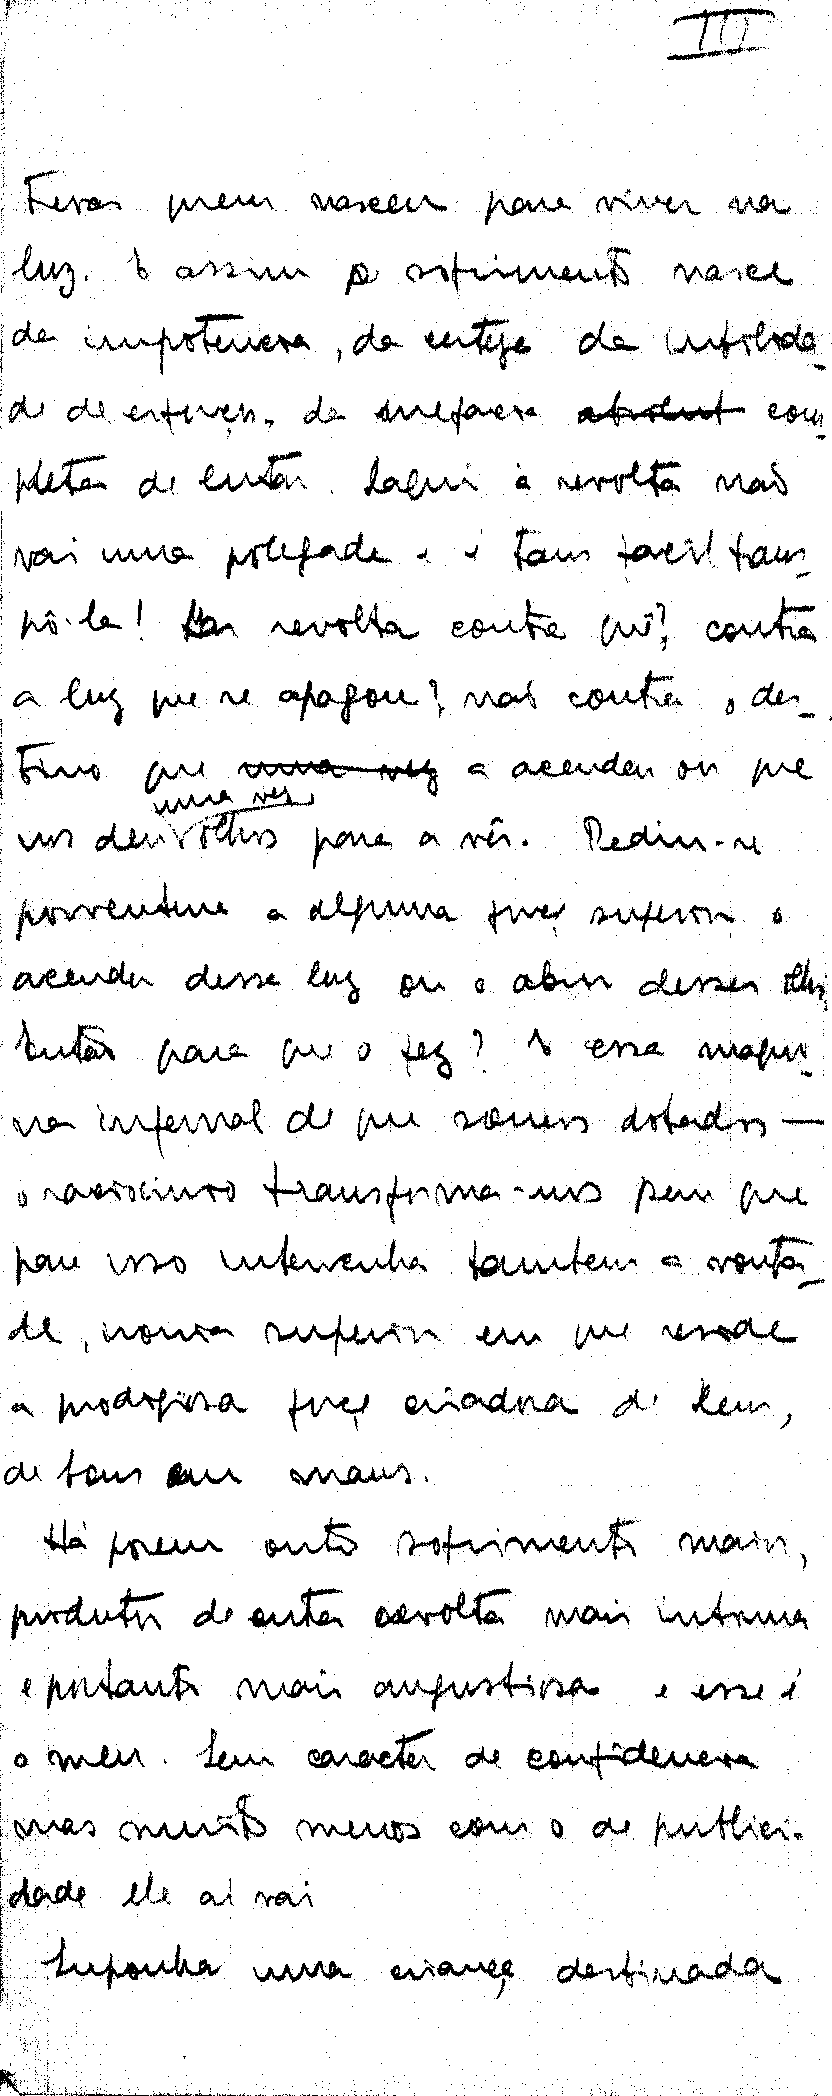 III
trevas quem nasceu para viver na
luz. E assim o sofrimento nasce
da impotencia, da certeza da inutilida-
de de esforços, da ineficacia absolut com-
pleta de lutar. Daqui á revolta não
vai uma polegada e é tam facil trans-
pô-la! Mas revolta contra quê? contra
a luz que se apagou? não contra o des-
tino que uma vez a acendeu ou que
uma vez
nos deu olhos para a vêr. Pediu-se
porventura a alguma força superior o
acender dessa luz ou o abrir desses olhos
Então para que o fez? E essa maqui-
na infernal de que somos dotados —
o raciocinio transforma-nos sem que
para isso intervenha tambem a vonta-
de, nossa superior em que reside
a prodigiosa força criadora de seres,
de bons em maus.
Há porem outro sofrimento mais,
produto de outra revolta mais intima
e portanto mais angustiosa e esse é
o meu. Sem caracter de confidencia
mas muito menos com o de publici-
dade ele aí vai
Suponha uma criança destinada